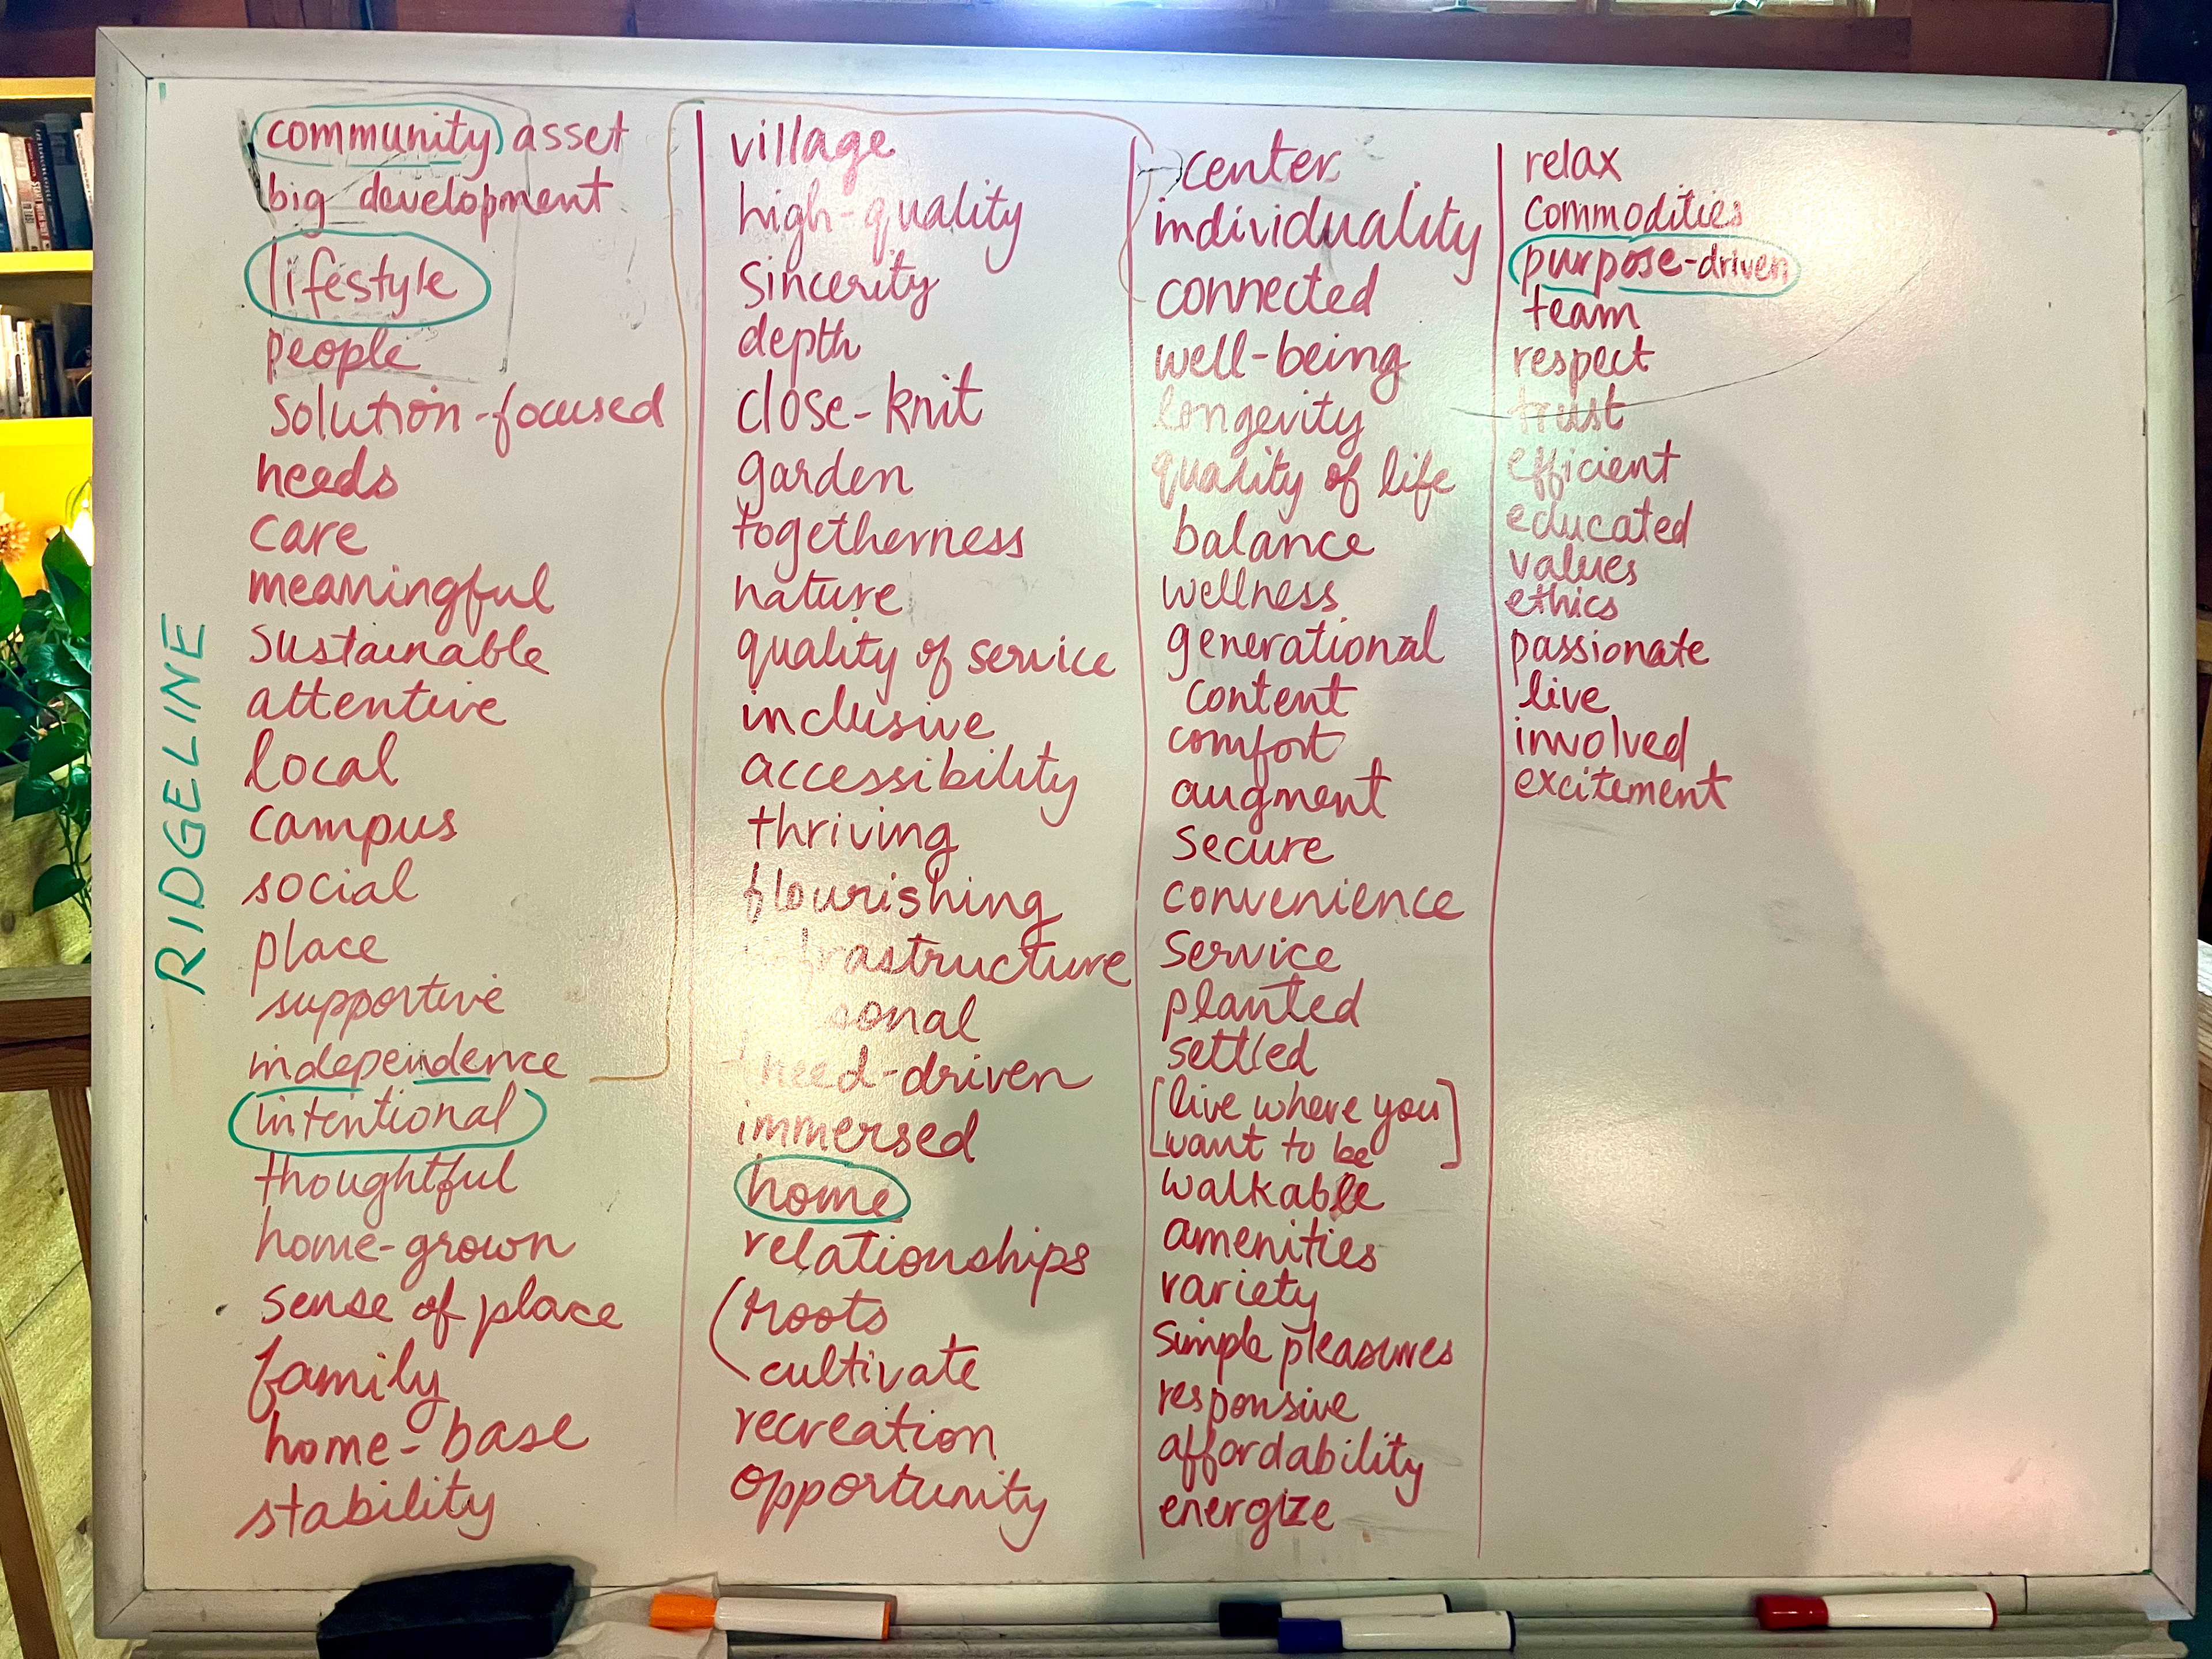 RIDGELINE
community asset
big development
lifestyle
people
solution-focused
needs
care
meaningful
sustainable
attentive
local
campus
social
place
supportive
independence
intentional
thoughtful
home-grown
sense of place
family
home-base
stability
village
high-quality
sincerity
depth
close-knit
garden
togetherness
nature
quality of service
inclusive
accessibility
thriving
flourishing
frastructure
sonal
need-driven
immersed
home
relationships
roots
cultivate
recreation
opportunity
center
individuality
connected
well-being
longevity
quality of life
balance
wellness
generational
content
comfort
augment
secure
convenience
service
planted
settled
[live where you
want to be]
walkable
amenities
variety
simple pleasures
responsive
affordability
energize
relax
commodities
purpose-driven
team
respect
trust
efficient
educated
values
ethics
passionate
live
involved
excitement